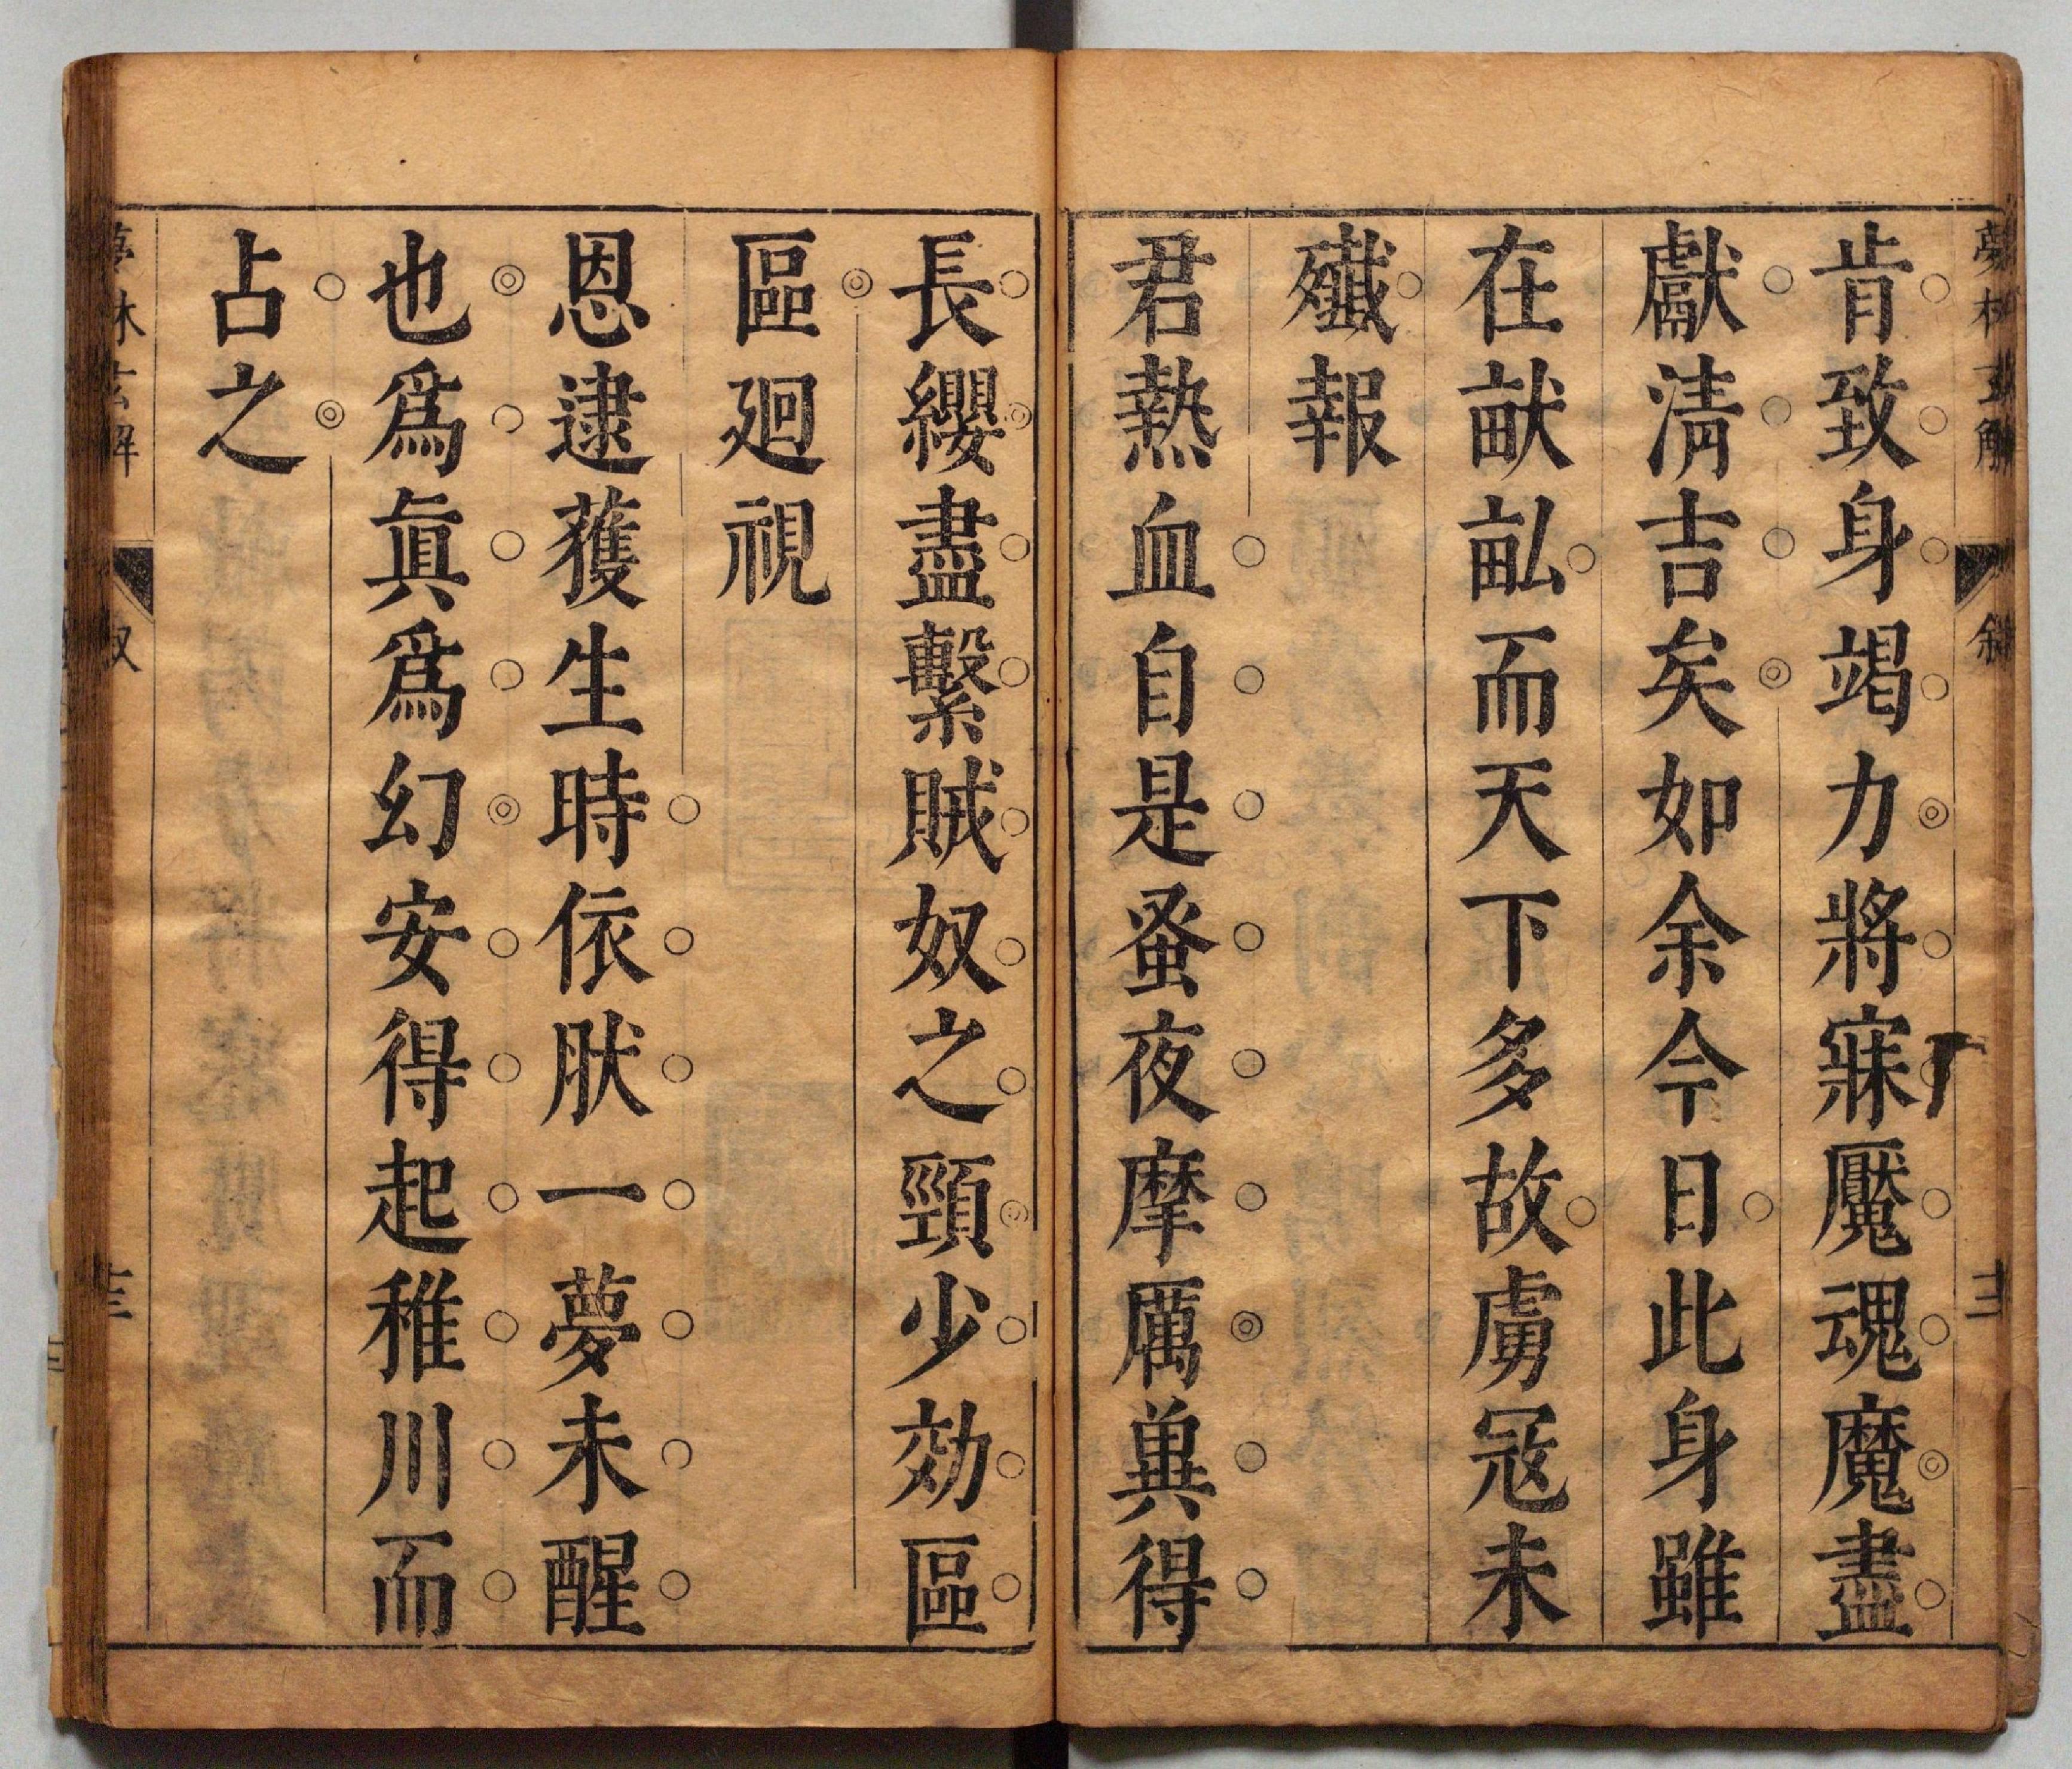 夢林玄解
敘
肯致身竭力將寐魘魂魔盡
獻清吉矣如余今日此身雖
在畎畆而天下多故虜寇未
殲報
君熱血自是蚤夜摩厲兾得
長纓盡繫賊奴之頸少効區
區廻視
恩逮獲生時依肰一夢未醒
也爲眞爲幻安得起稚川而
占之
夢林玄解
敘
十三